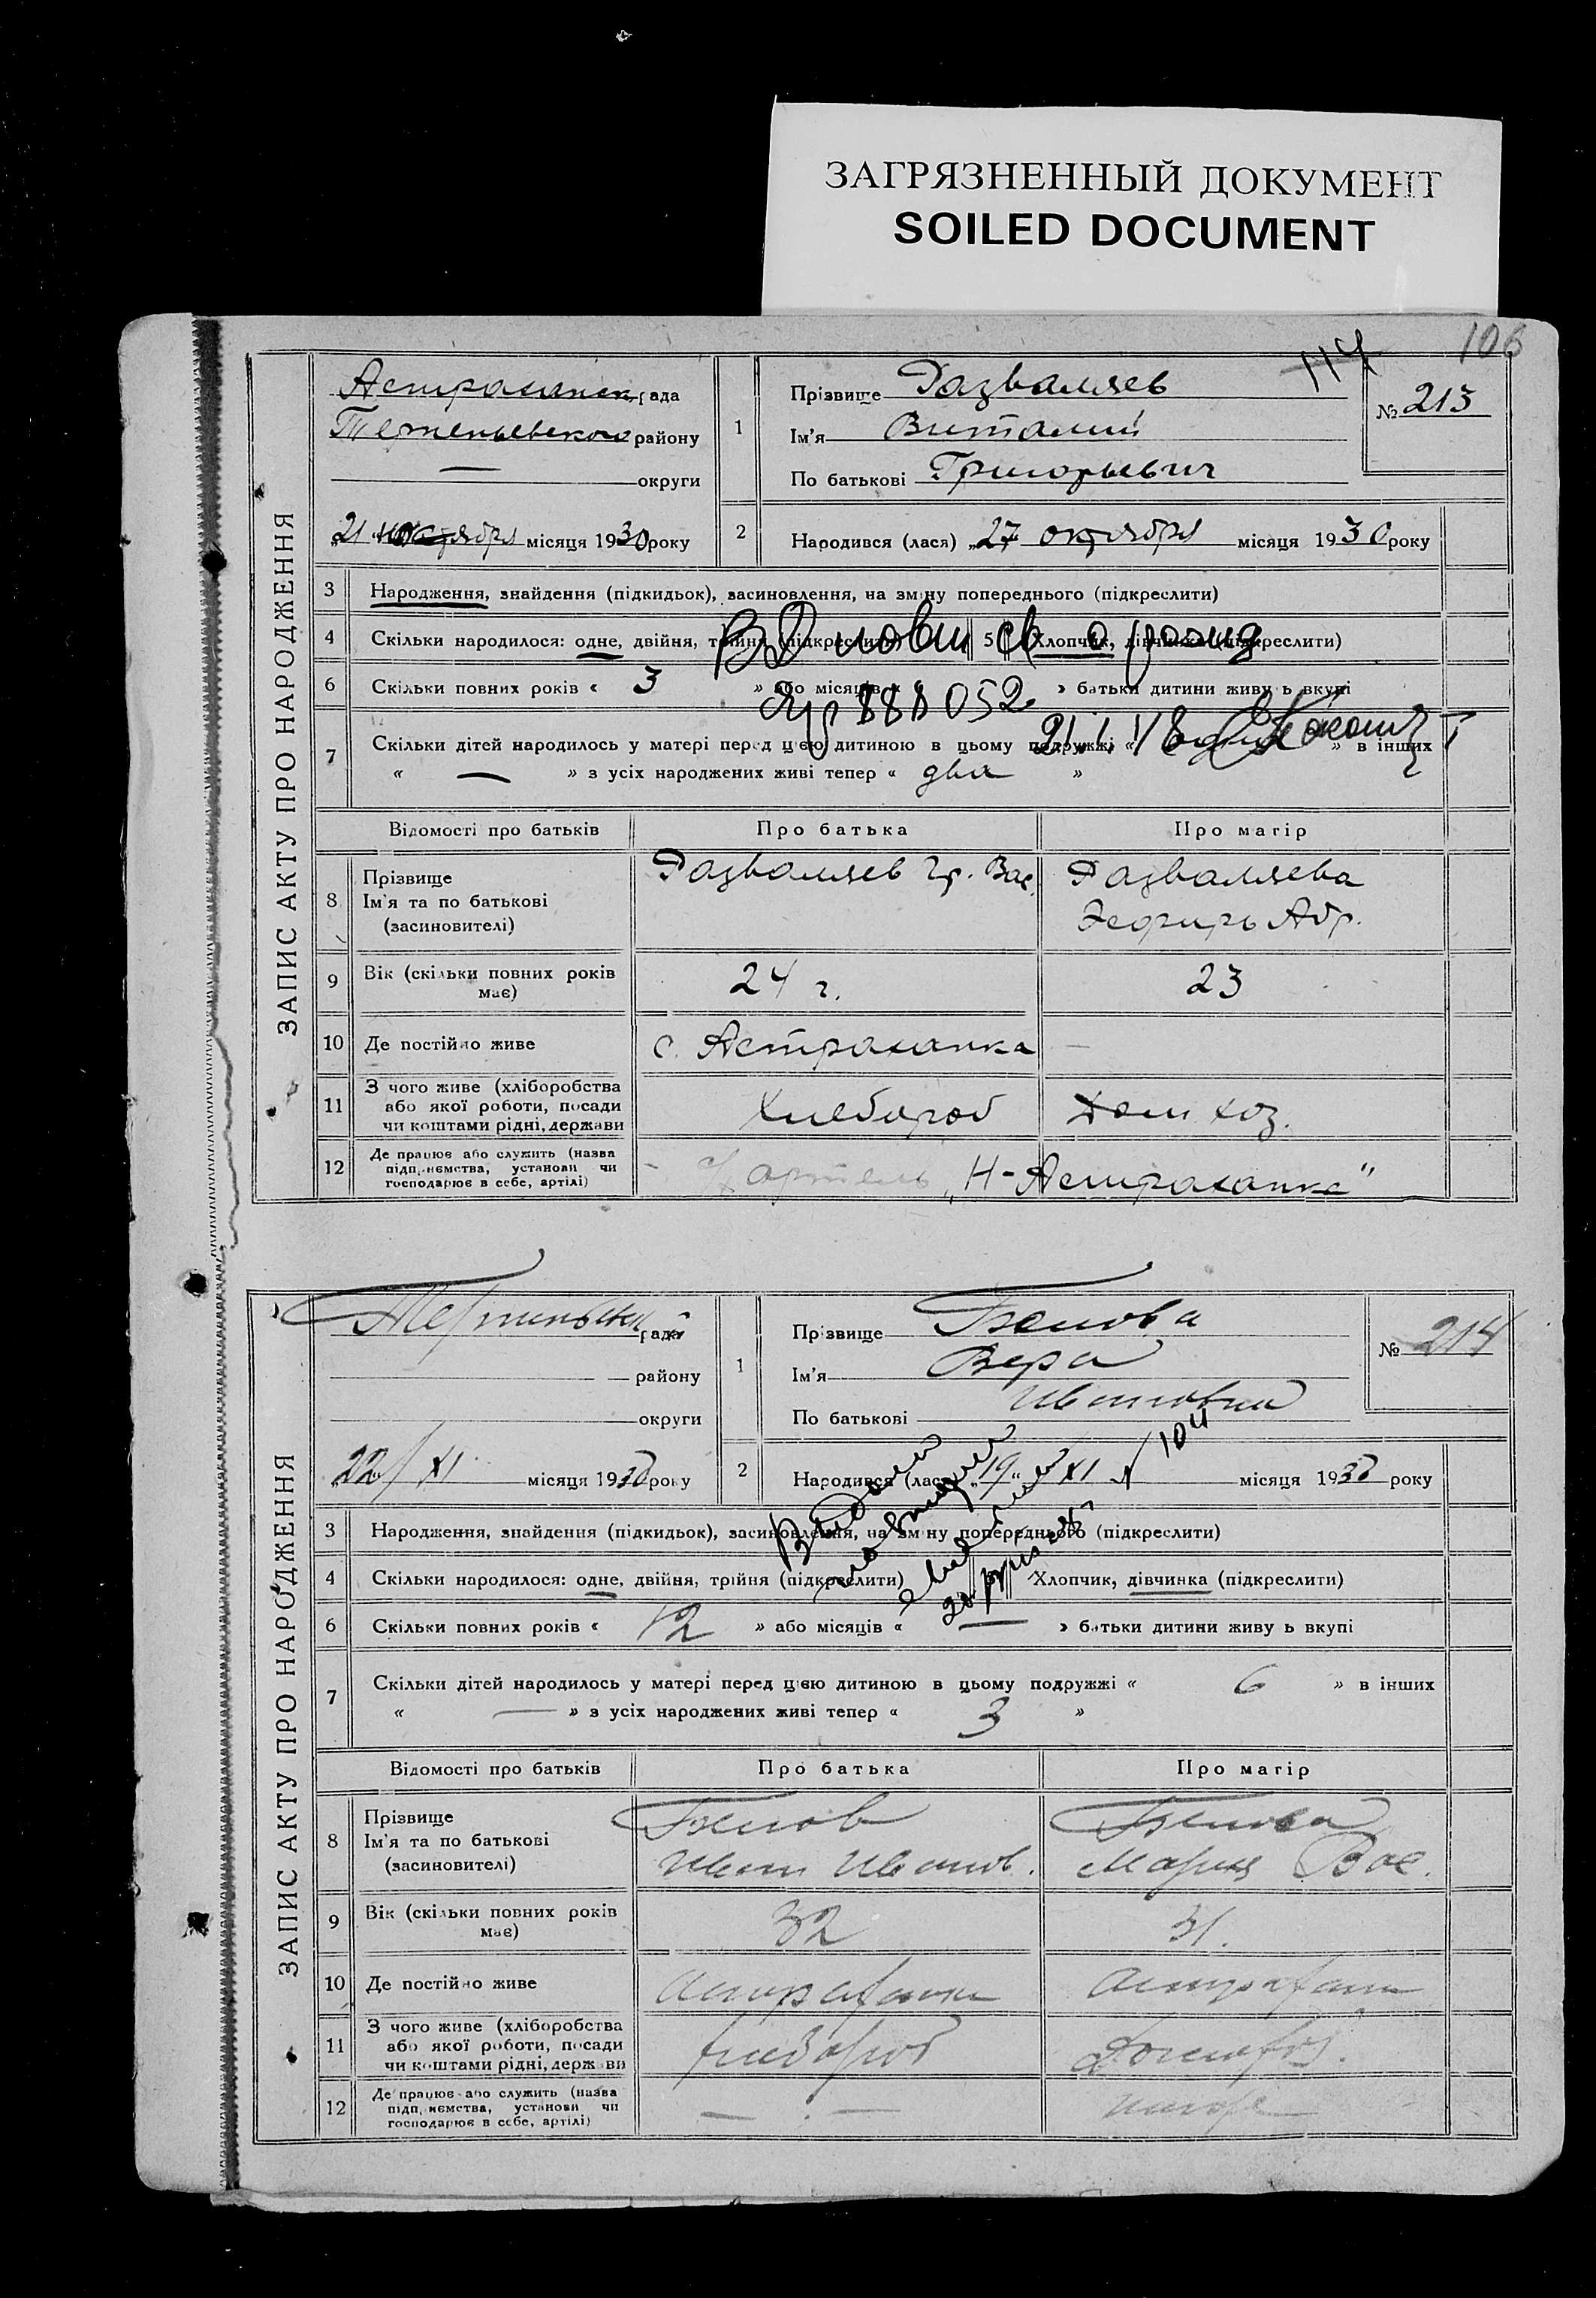 ЗАГРЯЗНЕННЫЙ ДОКУМЕНТ
SOILED DOCUMENT
106
114
ЗАПИС АКТУ ПРО НАРОДЖЕННЯ
Астраханск. рада
района
— округи
„21 октября місяця 1930 року
1 Прізвище Разваляев
Ім'я Виталий
По батькові Григорьевич
№ 213
2 Народився (лася) „27 октября місяця 1930 року
3 Народження, знайдення (підкидьок), засиновлення, на зміну попереднього (підкреслити)
4 Скільки народилося: одне, двійня, трійня (підкреслити) 5 Хлопчик, дівчинка (підкреслити)
6 Скільки повних років « 3 » або місяців « » батьки дитини живуть вкупі
7 Скільки дітей народилось у матері перед цією дитиною в цьому подружжі « » в інших
« — » з усіх народжених живі тепер « два »
Відомості про батьків Про батька Про матір
8 Прізвище Ім'я та по батькові (засновителі) Разваляев Гр. Вас. Разваляева Зефирь Абр.
9 Вік (скільки повних років має) 24 г. 23
10 Де постійно живе с. Астраханка —
11 З чого живе (хліборобства або якої роботи, посади чи коштами рідні, держави Хлебороб Дом хоз.
12 Де працює або служить (назва підприємства, установи чи господарює в себе, артілі) с/х артель „Н-Астраханка"
ЗАПИС АКТУ ПРО НАРОДЖЕННЯ
рада
району
округи
„22/XI місяця 1930 року
1 Прізвище Белова
Ім'я Вера
По батькові Ивановна
№ 214
2 Народився (лася) „19" XI місяця 1930 року
3 Народження, знайдення (підкидьок), засиновлення, на зміну попереднього (підкреслити)
4 Скільки народилося: одне, двійня, трійня (підкреслити) Хлопчик, дівчинка (підкреслити)
6 Скільки повних років « 12 » або місяців « — » батьки дитини живуть вкупі
7 Скільки дітей народилось у матері перед цією дитиною в цьому подружжі « 6 » в інших
« — » з усіх народжених живі тепер « 3 »
Відомості про батьків Про батька Про матір
8 Прізвище Ім'я та по батькові (засиновителі) Белов Иван Иванов. Белова Мария Вас.
9 Вік (скільки повних років має) 32 31.
10 Де постійно живе Астраханка Астраханка
11 З чого живе (хліборобства або якої роботи, посади чи коштами рідні, держави хлебороб Домохоз.
12 Де працює або служить (назва підприємства, установи чи господарює в себе, артілі) —